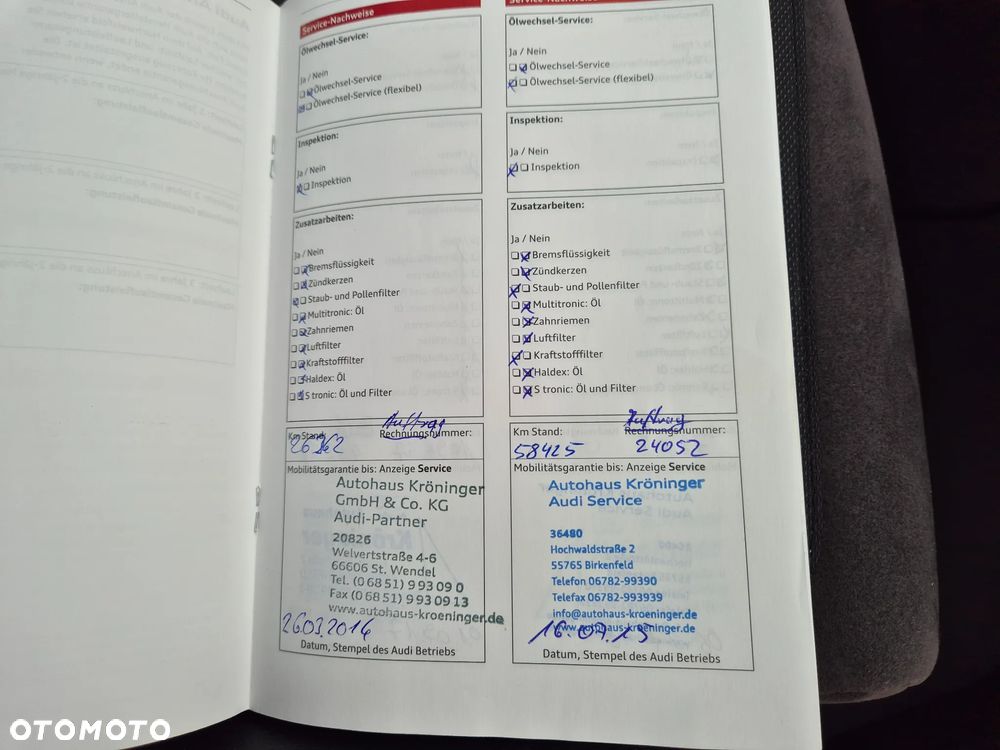 Service-Nachweise
Ölwechsel-Service:
Ja / Nein
Ölwechsel-Service
Ölwechsel-Service (flexibel)
Inspektion:
Ja / Nein
Inspektion
Zusatzarbeiten:
Ja / Nein
Bremsflüssigkeit
Zündkerzen
Staub- und Pollenfilter
Multitronic: Öl
Zahnriemen
Luftfilter
Kraftstofffilter
Haldex: Öl
S tronic: Öl und Filter
Auftrag
Km Stand: Rechnungsnummer:
Mobilitätsgarantie bis: Anzeige Service
Autohaus Kröninger
GmbH & Co. KG
Audi-Partner
20826
Welvertstraße 4-6
66606 St. Wendel
Tel. (0 68 51) 9 93 09 0
Fax (0 68 51) 9 93 09 13
www.autohaus-kroeninger.de
26.03.2014
Datum, Stempel des Audi Betriebs
Service-Nachweise
Ölwechsel-Service:
Ja / Nein
Ölwechsel-Service
Ölwechsel-Service (flexibel)
Inspektion:
Ja / Nein
Inspektion
Zusatzarbeiten:
Ja / Nein
Bremsflüssigkeit
Zündkerzen
Staub- und Pollenfilter
Multitronic: Öl
Zahnriemen
Luftfilter
Kraftstofffilter
Haldex: Öl
S tronic: Öl und Filter
Auftrag
Km Stand: Rechnungsnummer:
58425 24052
Mobilitätsgarantie bis: Anzeige Service
Autohaus Kröninger
Audi Service
36480
Hochwaldstraße 2
55765 Birkenfeld
Telefon 06782-99390
Telefax 06782-993939
info@autohaus-kroeninger.de
www.autohaus-kroeninger.de
Datum, Stempel des Audi Betriebs
OTOMOTO